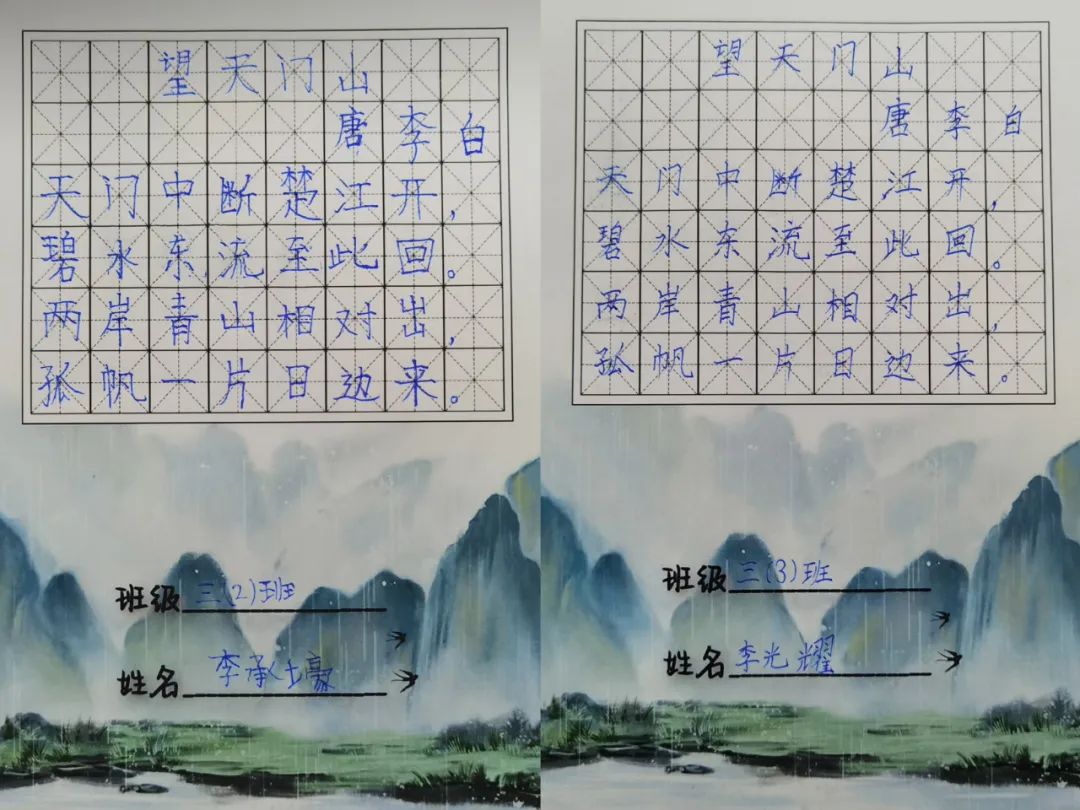 望天门山
唐李白
天门中断楚江开，
碧水东流至此回。
两岸青山相对出，
孤帆一片日边来。
班级三(2)班
姓名李承壕
望天门山
唐李白
天门中断楚江开，
碧水东流至此回。
两岸青山相对出，
孤帆一片日边来。
班级三(3)班
姓名李光耀